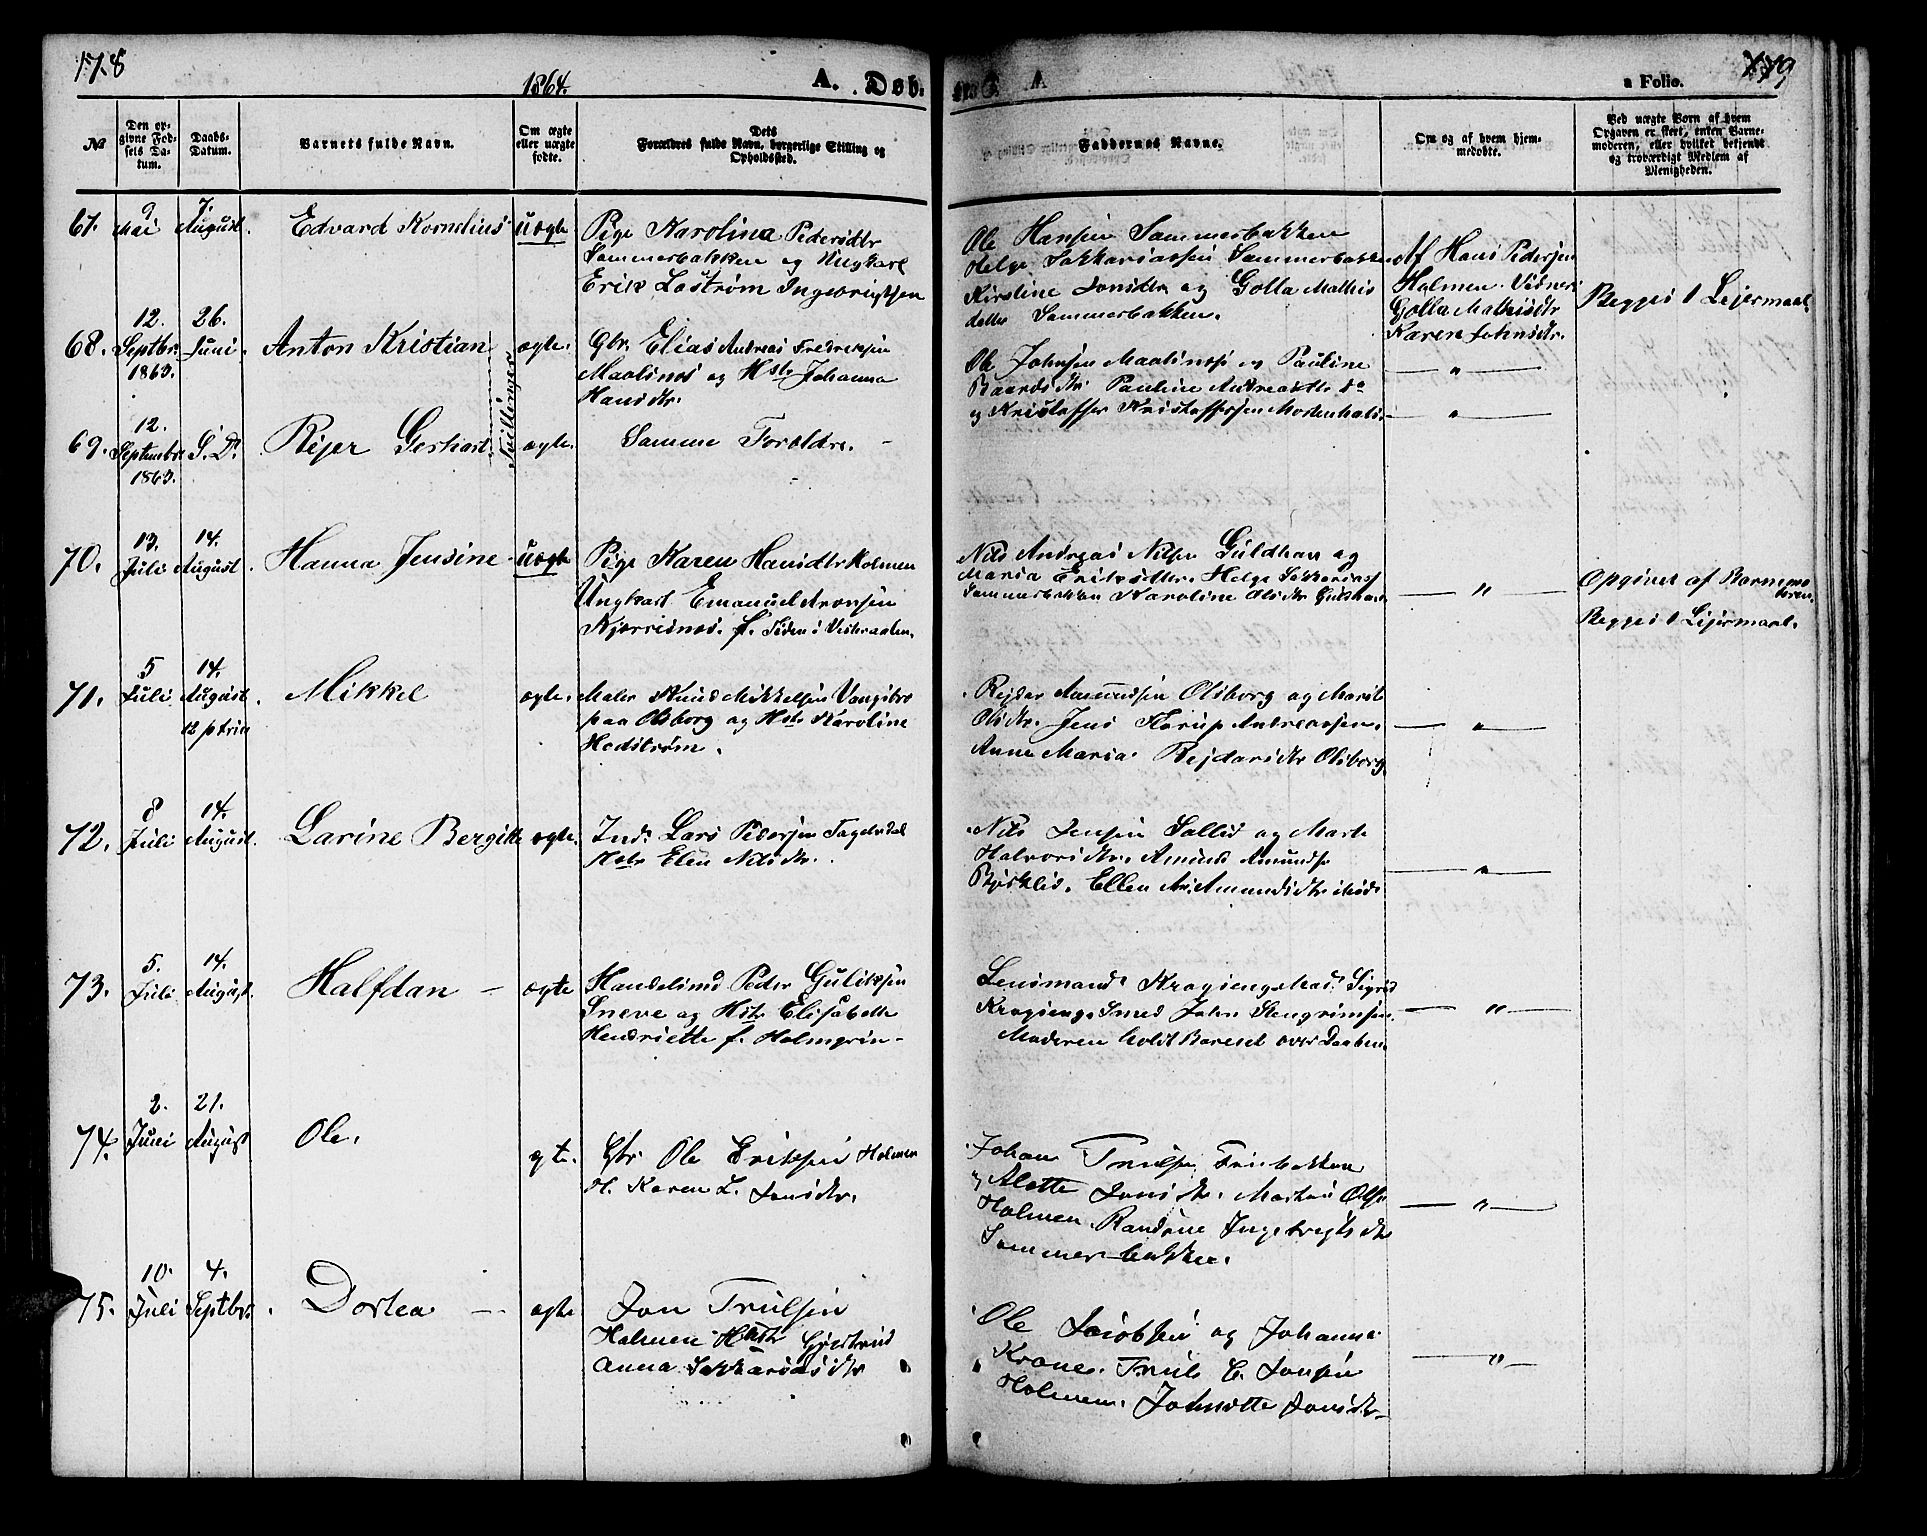 178
1864.
A. Døb.
179
a Folio.
No
Den opgivne Fødsels Datum.
Daabs-Datum.
Barnets fulde Navn.
Om ægte eller uægte fødte.
Dets Forældres fulde Navn, borgerlige Stilling og Opholdssted.
Faddernes Navne.
Om og af hvem hjemmedøbte.
Ved uægte Børn af hvem Opgaven er skeet, enten Barnemoderen, eller hvilket bekjendt og troværdigt Medlem af Menigheden.
67. 9 Mai 7. August. Edvard Kornelius uægte
Pige Karolina Pedersdtr
Sommerbakken og Ungkarl
Erik Lostrøm Ingebrigtsen
Ole Hansen Sommerbakken
Helge Sakkariassen Sommerbakken
Kirstine Jonsdtr og Golla Mathis
datter Sommerbakken.
Af Hans Pedersen
Holmen. Vidner
Golla Mathisdtr
Karen Johnsdtr.
Begges 1 Lejermaal.
68. 12. Septbr. 1863. 26. Juni. Anton Kristian ægte.
Tvillinger
Gbr. Elias Andreas Fredriksen
Maalsnes og Hstr Johanna
Hansdtr.
Ole Johnsen Maalsnes og Pauline
Baardsdtr. Pauline Andreasdtr do
og Kristoffer Kristoffersen Mortenhals
— " —
— " —
69. 12. Septembr 1863. S. D. Rejer Gerhart ægte.
Samme Forældre. -
70. 13. Juli 14. August. Hanna Jensine uægte
Pige Karen Hansdtr Holmen
Ungkarl Emanuel Aronsen
Nils Andreas Nilsen Guldhav og
Maria Eriksdtr. Helge Sakkariass
Sommerbakken Karoline Olsdtr Guldhav
— " —
Opgivet af Barnemo
deren.
Begges 1 Lejermaal.
71. 5 Juli 14. August 12 p trin Mikkel ægte.
Maler Knud Mikkelsen Vangsbro
paa Olsborg og Hstr Karoline
Hedstrøm.
Rejdar Amundsen Olsborg og Marit
Olsdtr. Jens Kørup Andreassen.
Anne Maria Rejdarsdtr Olsborg
— " —
72. 8 Juli 14. August. Larine Bergitte ægte.
Ind. Lars Pedersen Fagerlidal
Hstr Elen Nilsdtr.
Nils Jensen Sollid og Marte
Halvorsdtr. Amund Amundse
Bjørklid. Ellen Ar. Amundsdtr Moe
— " —
73. 5. Juli 14. August. Halfdan — ægte
Handelsmd Peder Guliksen
Sneve og Hstr Elisabeth
Henriette f. Holmgren -
Lensmand Kragieng Mad. Sigrid
Kragieng. Smed John Stengrimsen.
Moderen holdt Barnet over Daaben.
— " —
74. 2. Juni 21. August Ole. ægte.
Gbr. Ole Eriksen Holmen
H. Karen L. Jonsdtr.
Johan Trulsen Friebakken
og Alette Jonsdtr. Morten Olsen
Holmen. Randine Ingebregtsdtr
Sommerbakken.
— " —
75. 10. Juli 4. Septbr. Dortea — ægte
Jon Trulsen
Holmen Hstr Gjertrud
Anna Sakkariasdtr
Ole Jacobsen og Johanna
Krane. Truls E. Jonsen
Holmen. Johnette Jonsdtr
— " —